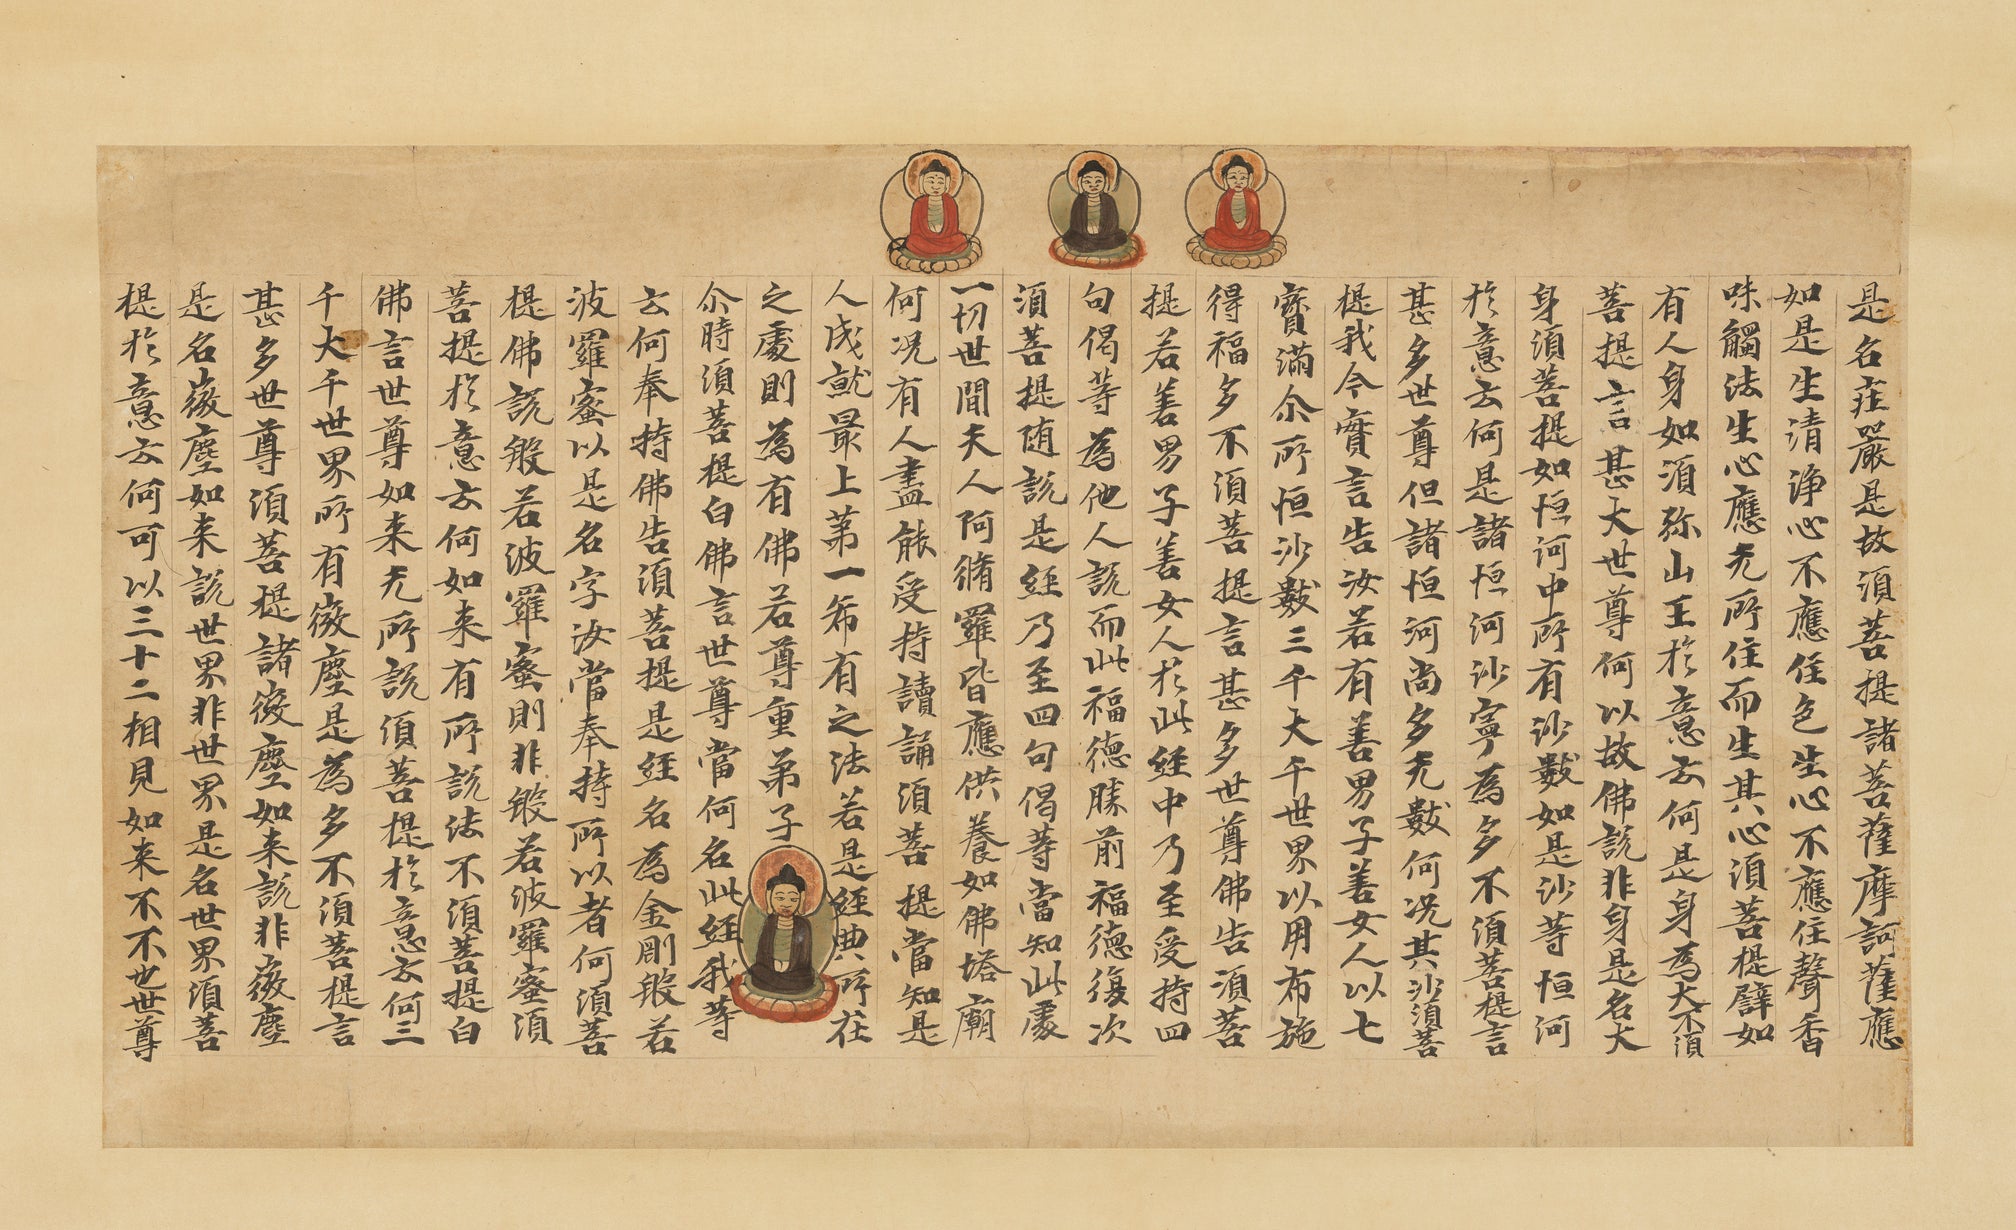 是名莊嚴是故須菩提諸菩薩摩訶薩應
如是生清淨心不應住色生心不應住聲香
味觸法生心應无所住而生其心須菩提譬如
有人身如須弥山王於意云何是身為大不須
菩提言甚大世尊何以故佛說非身是名大
身須菩提如恒河中所有沙數如是沙等恒河
於意云何是諸恒河沙寧為多不須菩提言
甚多世尊但諸恒河尚多无數何况其沙須菩
提我今實言告汝若有善男子善女人以七
寶滿尒所恒沙數三千大千世界以用布施
得福多不須菩提言甚多世尊佛告須菩
提若善男子善女人於此經中乃至受持四
句偈等為他人說而此福德勝前福德復次
須菩提随說是經乃至四句偈等當知此處
一切世間天人阿脩羅皆應供養如佛塔廟
何况有人盡能受持讀誦須菩提當知是
人成就最上第一希有之法若是經典所在
之處則為有佛若尊重弟子
尒時須菩提白佛言世尊當何名此經我等
云何奉持佛告須菩提是經名為金剛般若
波羅蜜以是名字汝當奉持所以者何須菩
提佛說般若波羅蜜則非般若波羅蜜須
菩提於意云何如来有所說法不須菩提白
佛言世尊如来无所說須菩提於意云何三
千大千世界所有微塵是為多不須菩提言
甚多世尊須菩提諸微塵如来說非微塵
是名微塵如来說世界非世界是名世界須菩
提於意云何可以三十二相見如来不不也世尊